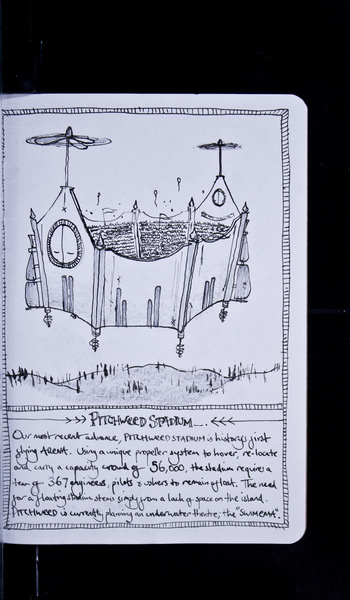 PITCHWEED STADIUM....
Our most recent advance, PITCHWEED STADIUM is history's first
flying ARENA. Using a unique propeller system to hover, re-locate
and carry a capacity crowd of 56,000, the stadium requires a
team of 367 engineers, pilots & ushers to remain afloat. The need
for a floating stadium stems simply from a lack of space on the island.
PITCHWEED is currently planning an underwater theatre, the "SWIMEMA".